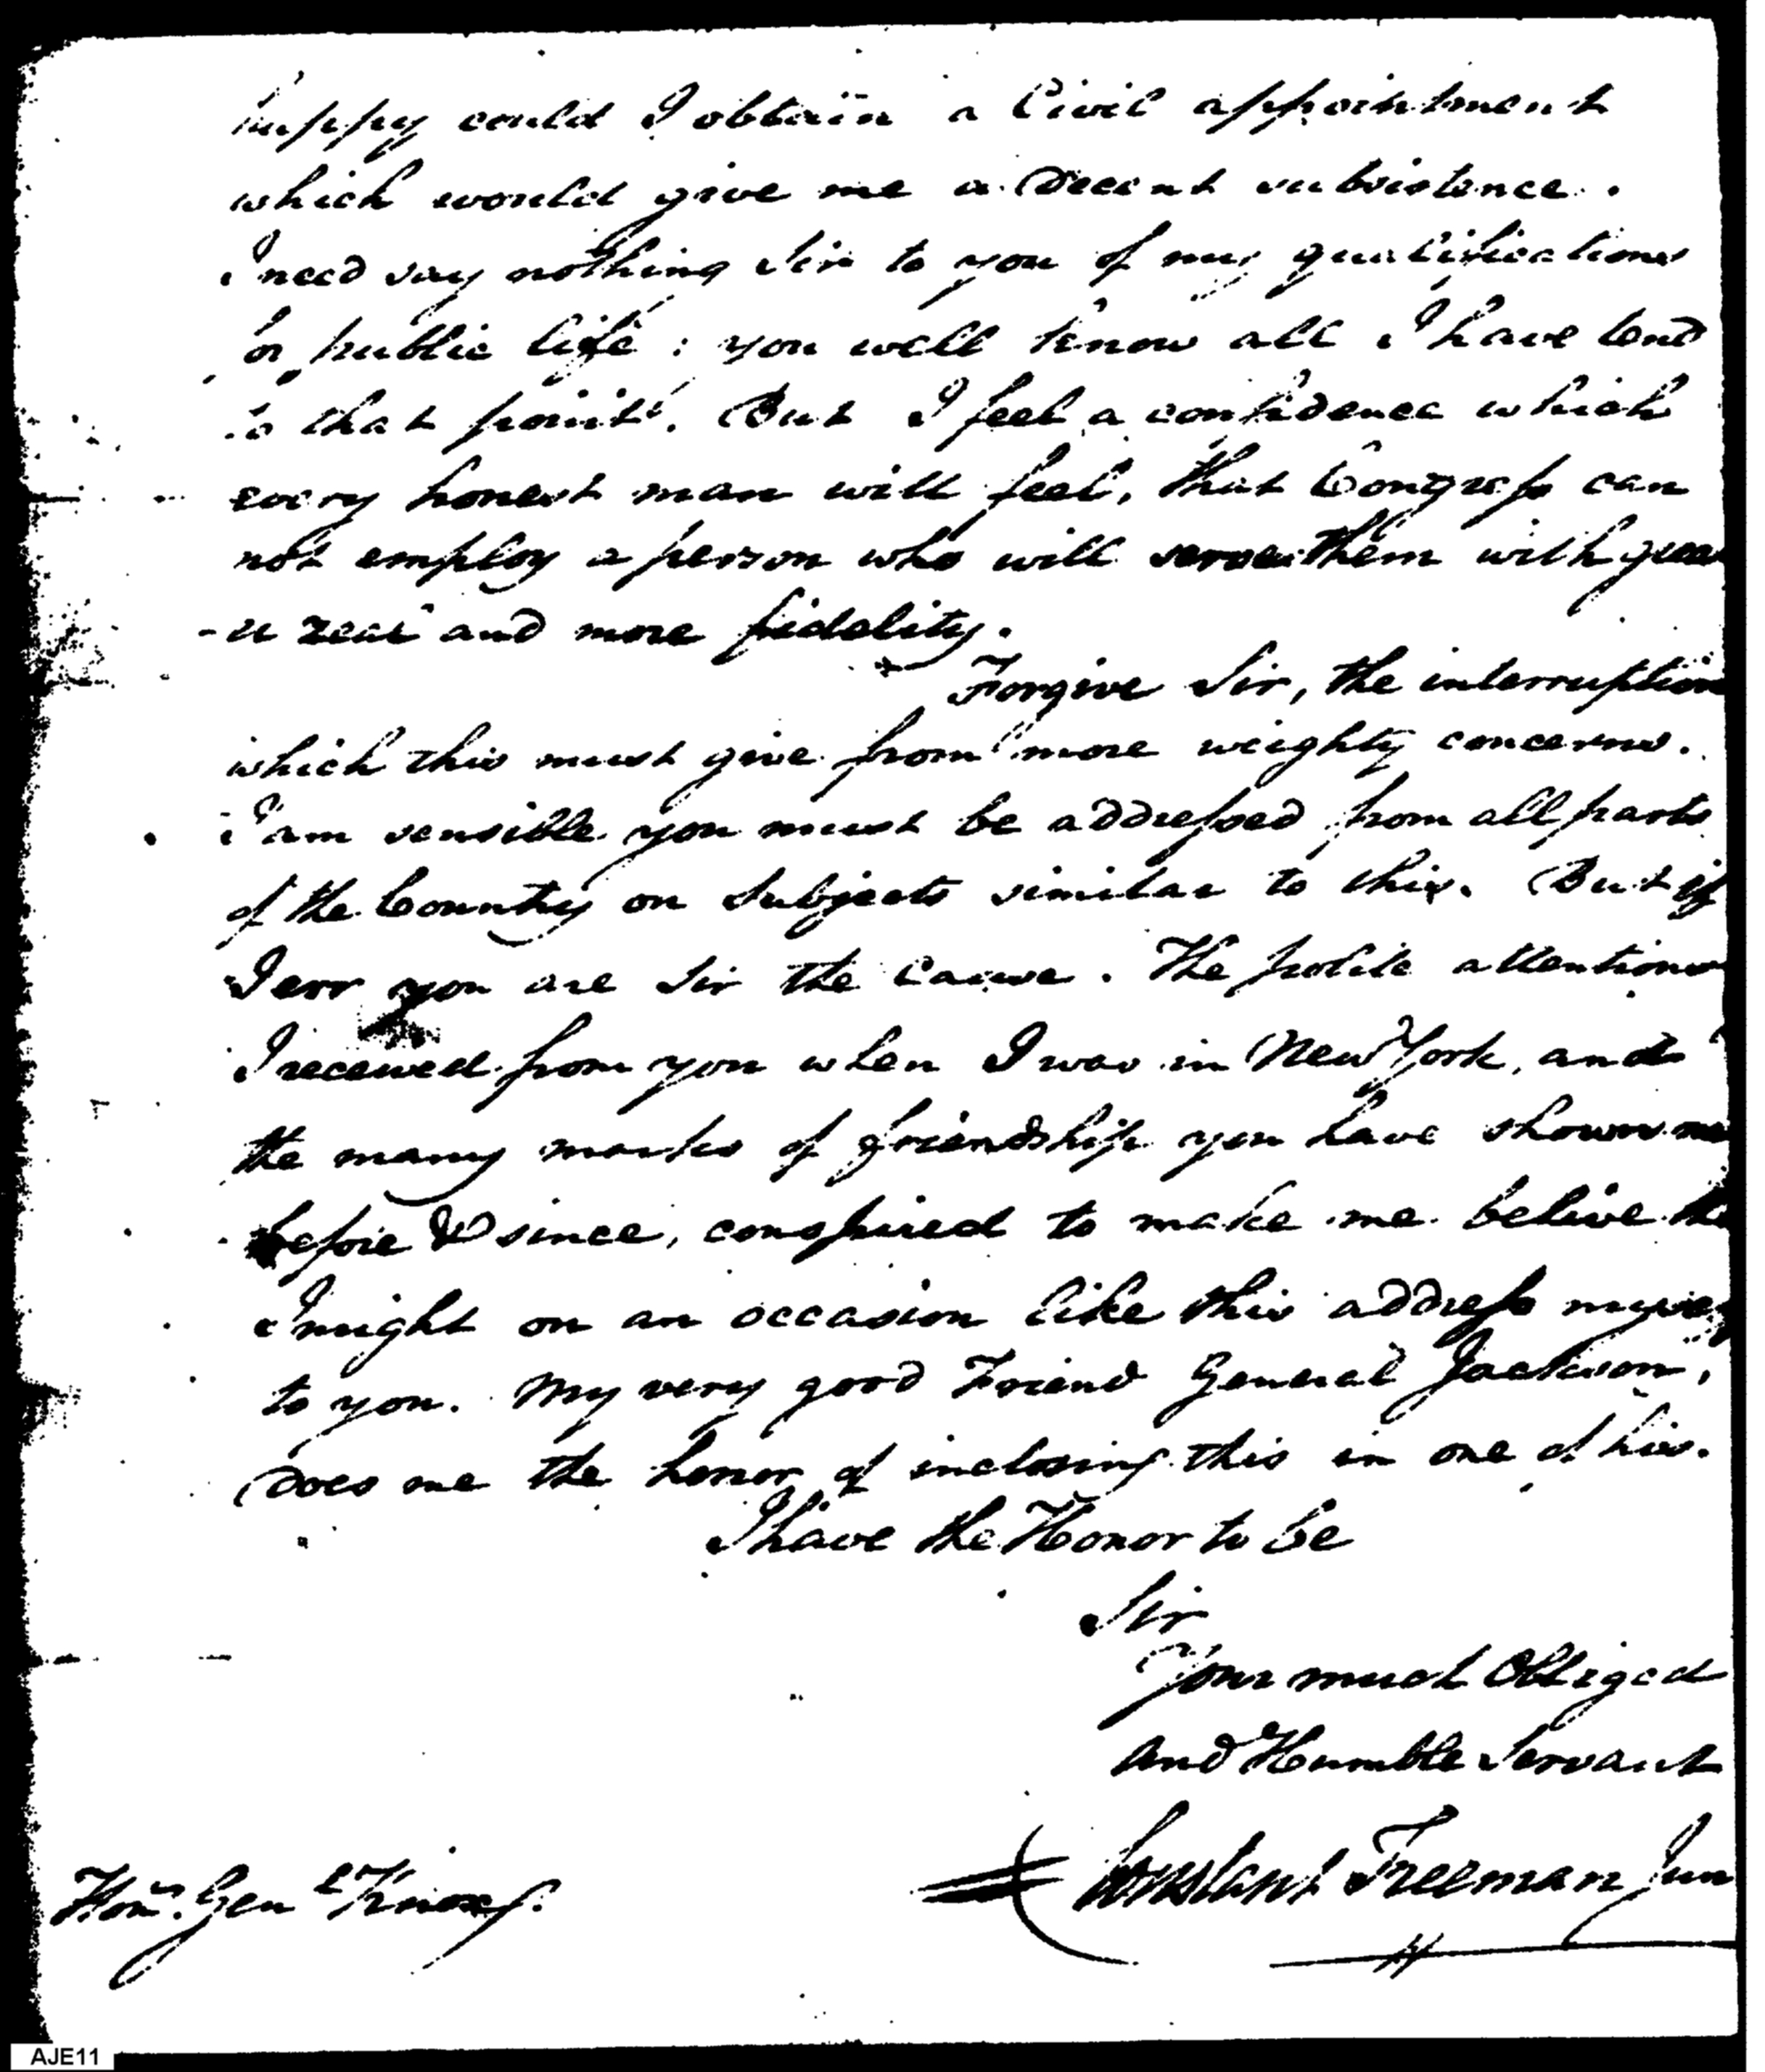 happy could I obtain a Civil appointment
which would give me a Decent subsistence.
I need say nothing Sir to you of my qualifications
for public life: you well know all I have tend
to that point. But I feel a confidence which
every honest man will feel, that Congress can
not employ a person who will serve them with grea
-er zeal and more fidelity.
Forgive Sir, the interruption
which this must give from more weighty concerns.
I am sensible you must be addressed from all parts
of the Country on Subjects similar to this. But if
I err you are Sir the Cause. The polite attentions
I received from you when I was in New York, and
the many marks of friendship you have shown me
before & since, conspired to make me belive tha
I might on an occasion like this address myself
to you. My very good Friend General Jackson,
Does me the honor of inclosing this in one of his.
I have the Honor to be
Sir
Your much Obliged
and Humble Servant
Constant Freeman Jun
Hon. Genl Knox.
AJE11